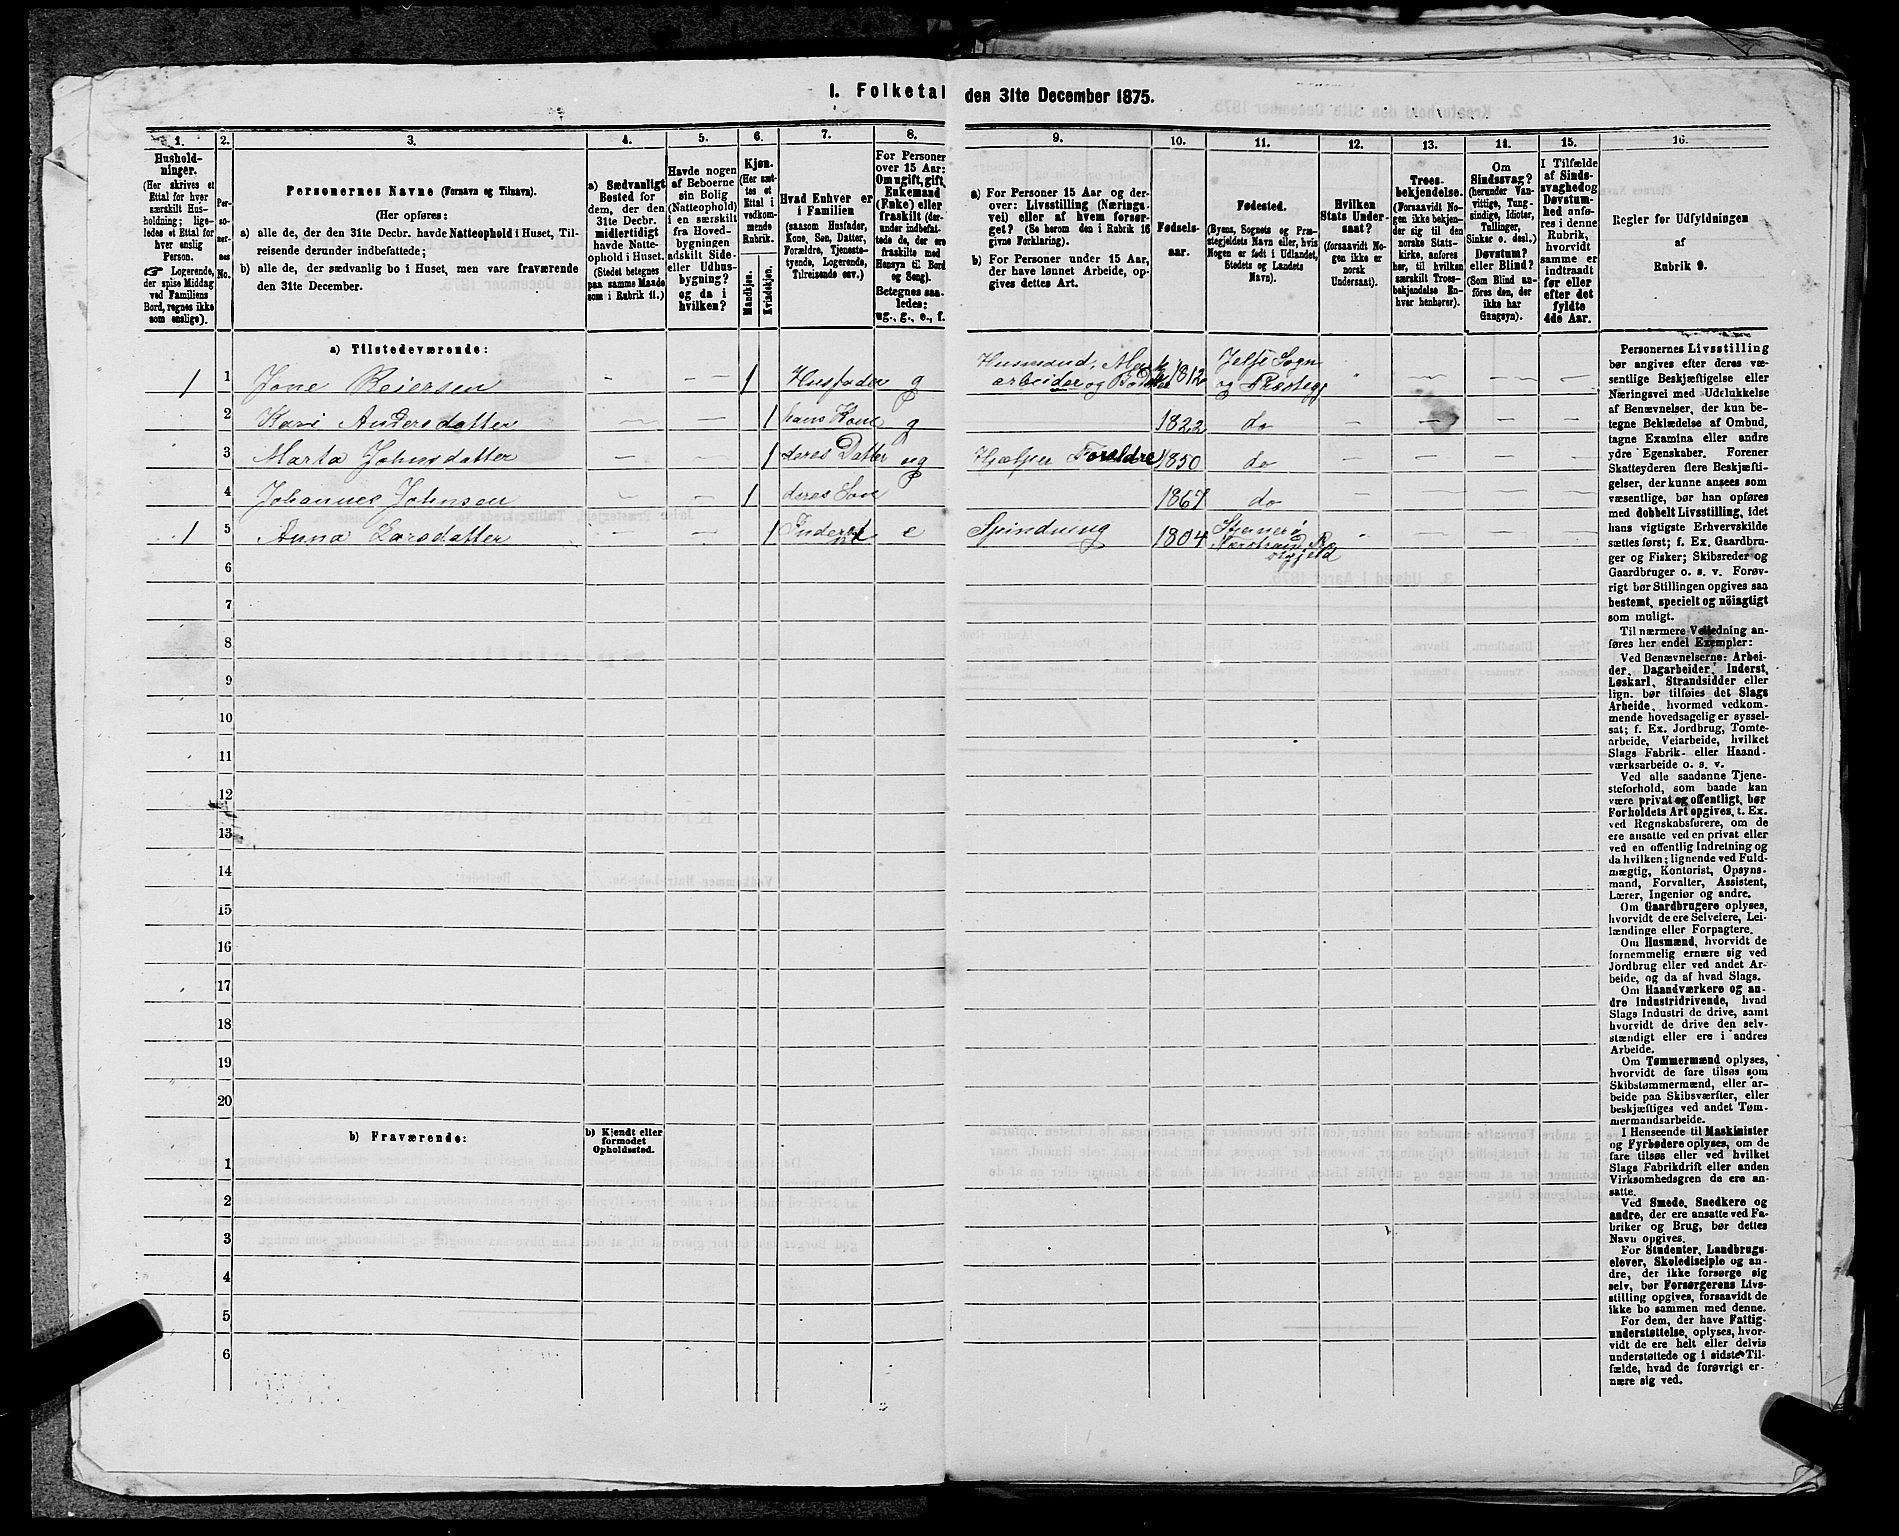 I. Folketal den 31te December 1875.
1.
Hushold-
ninger.
(Her skrives et
Ettal for hver
særskilt Hus-
holdning; lige-
ledes et Ettal for
hver enslig
Person.
Logerende,
der spise Middag
ved Familiens
Bord, regnes ikke
som enslige).
2.
Per-
so-
ner-
nes
No.
3.
Personernes Navne (Fornavn og Tilnavn).
(Her opføres:
a) alle de, der den 31te Decbr. havde Natteophold i Huset, Til-
reisende derunder indbefattede;
b) alle de, der sædvanlig bo i Huset, men vare fraværende
den 31te December.
4.
a) Sædvanligt
Bosted for
dem, der den
31te Decbr.
midlertidigt
havde Natte-
ophold i Huset.
(Stedet betegnes
paa samme Maade
som i Rubrik 11.)
5.
Havde nogen
af Beboerne
sin Bolig
(Natteophold)
i en særskilt
fra Hoved-
bygningen
adskilt Side-
eller Udhus-
bygning?
og da i
hvilken?
6.
Kjøn.
(Her sæt-
tes et
Ettal i
vedkom-
mende
Rubrik.
Mandkjøn.
Kvindekjøn.
7.
Hvad Enhver er
i Familien
(saasom Husfader,
Kone, Søn, Datter,
Forældre, Tjeneste-
tyende, Logerende,
Tilreisende osv.)
8.
For Personer
over 15 Aar:
Om ugift, gift,
Enkemand
(Enke) eller
fraskilt (der-
under indbefat-
tede de, der ere
fraskilte med
Hensyn til Bord
og Seng).
Betegnes saa-
ledes:
ug., g., e., f.
9.
a) For Personer 15 Aar og der-
over: Livsstilling (Nærings-
vei) eller af hvem forsør-
get? (Se herom den i Rubrik 16
givne Forklaring).
b) For Personer under 15 Aar,
der have lønnet Arbeide, op-
gives dettes Art.
10.
Fødsels-
aar.
11.
Fødested.
(Byens, Sognets og Præ-
stegjeldets Navn eller, hvis
Nogen er født i Udlandet,
Stedets og Landets
Navn).
12.
Hvilken
Stats Under-
saat?
(forsaavidt No-
gen ikke er
norsk
Undersaat).
13.
Troes-
bekjendelse.
(Forsaavidt No-
gen ikke bekjen-
der sig til den
norske Stats-
kirke, anføres
her, til hvilken
særskilt Troes-
bekjendelse En-
hver henhører).
14.
Om
Sindssvag?
(herunder Van-
vittige, Tung-
sindige, Idioter,
Tullinger,
Sinker o. desl.)
Døvstum?
eller Blind?
(Som Blind an-
føres den, der
ikke har
Gangsyn).
15.
I Tilfælde
af Sinds-
svaghed og
Døvstum-
hed anfø-
res i denne
Rubrik,
hvorvidt
samme er
indtraadt
før eller
efter det
fyldte
4de Aar.
16.
Regler for Udfyldningen
af
Rubrik 9.
a) Tilstedeværende:
1 1 Jone Reiersen – – 1 Husfader g Husmand, arbeider og 1812 Jelse Sogn og Præstegj – – – –
2 Kari Andersdatter – – 1 hans Kone g 1822 do – – – –
3 Marta Johnsdatter – – 1 deres Datter ug Hjælper Forældre 1850 do – – – –
4 Johannes Johnsen – – 1 deres Søn 1867 do – – – –
1 5 Anna Larsdatter – – 1 Inderst e Spinding 1804 – – – –
6
7
8
9
10
11
12
13
14
15
16
17
18
19
20
b) Fraværende:
b) Kjendt eller
formodet
Opholdssted.
1
2
3
4
5
6
Personernes Livsstilling
bør angives efter deres væ-
sentlige Beskjæftigelse eller
Næringsvei med Udelukkelse
af Benævnelser, der kun be-
tegne Beklædelse af Ombud,
tagne Examina eller andre
ydre Egenskaber. Forener
Skatteyderen flere Beskjæfti-
gelser, der kunne ansees som
væsentlige, bør han opføres
med dobbelt Livsstilling, idet
hans vigtigste Erhvervskilde
sættes først; f. Ex. Gaardbru-
ger og Fisker; Skibsreder og
Gaardbruger o. s. v. Forøv-
rigt bør Stillingen opgives saa
bestemt, specielt og nöiagtigt
som muligt.
Til nærmere Veiledning an-
føres her endel Exempler:
Ved Benævnelserne: Arbei-
der, Dagarbeider, Inderst,
Løskarl, Strandsidder eller
lign. bør tilføies det Slags
Arbeide, hvormed vedkom-
mende hovedsagelig er syssel-
sat; f. Ex. Jordbrug, Tomte-
arbeide, Veiarbeide, hvilket
Slags Fabrik- eller Haand-
værksarbeide o. s. v.
Ved alle saadanne Tjene-
steforhold, som baade kan
være privat og offentligt, bør
Forholdets Art opgives, t. Ex.
ved Regnskabsførere, om de
ere ansatte ved en privat eller
ved en offentlig Indretning og
da hvilken; lignende ved Fuld-
mægtig, Kontorist, Opsyns-
mand, Forvalter, Assistent,
Lærer, Ingeniør og andre.
Om Gaardbrugere oplyses,
hvorvidt de ere Selveiere, Lei-
lændinge eller Forpagtere.
Om Husmænd, hvorvidt de
fornemmelig ernære sig ved
Jordbrug eller ved andet Ar-
beide, og da af hvad Slags.
Om Haandværkere og an-
dre Industridrivende, hvad
Slags Industri de drive, samt
hvorvidt de drive den selv-
stændigt eller ere i andres
Arbeide.
Om Tømmermænd oplyses,
hvorvidt de fare tilsøs som
Skibstømmermænd, eller ar-
beide paa Skibsværfter, eller
beskjæftiges ved andet Tøm-
mermandsarbeide.
I Henseende til Maskinister
og Fyrbødere oplyses, om de
fare tilsøs eller ved hvilket
Slags Fabrikdrift eller anden
Virksomhedsgren de ere an-
satte.
Ved Smede, Snedkere og
andre, der ere ansatte ved Fa-
briker og Brug, bør dettes
Navn opgives.
For Studenter, Landbrugs-
elever, Skoledisciple og an-
dre, der ikke forsørge sig
selv, bør Forsørgerens Livs-
stilling opgives, forsaavidt de
ikke bo sammen med denne.
For dem, der have Fattig-
understøttelse, oplyses, hvor-
vidt de ere helt eller delvis
understøttede og i sidste Til-
fælde, hvad de forøvrigt er-
nære sig ved.